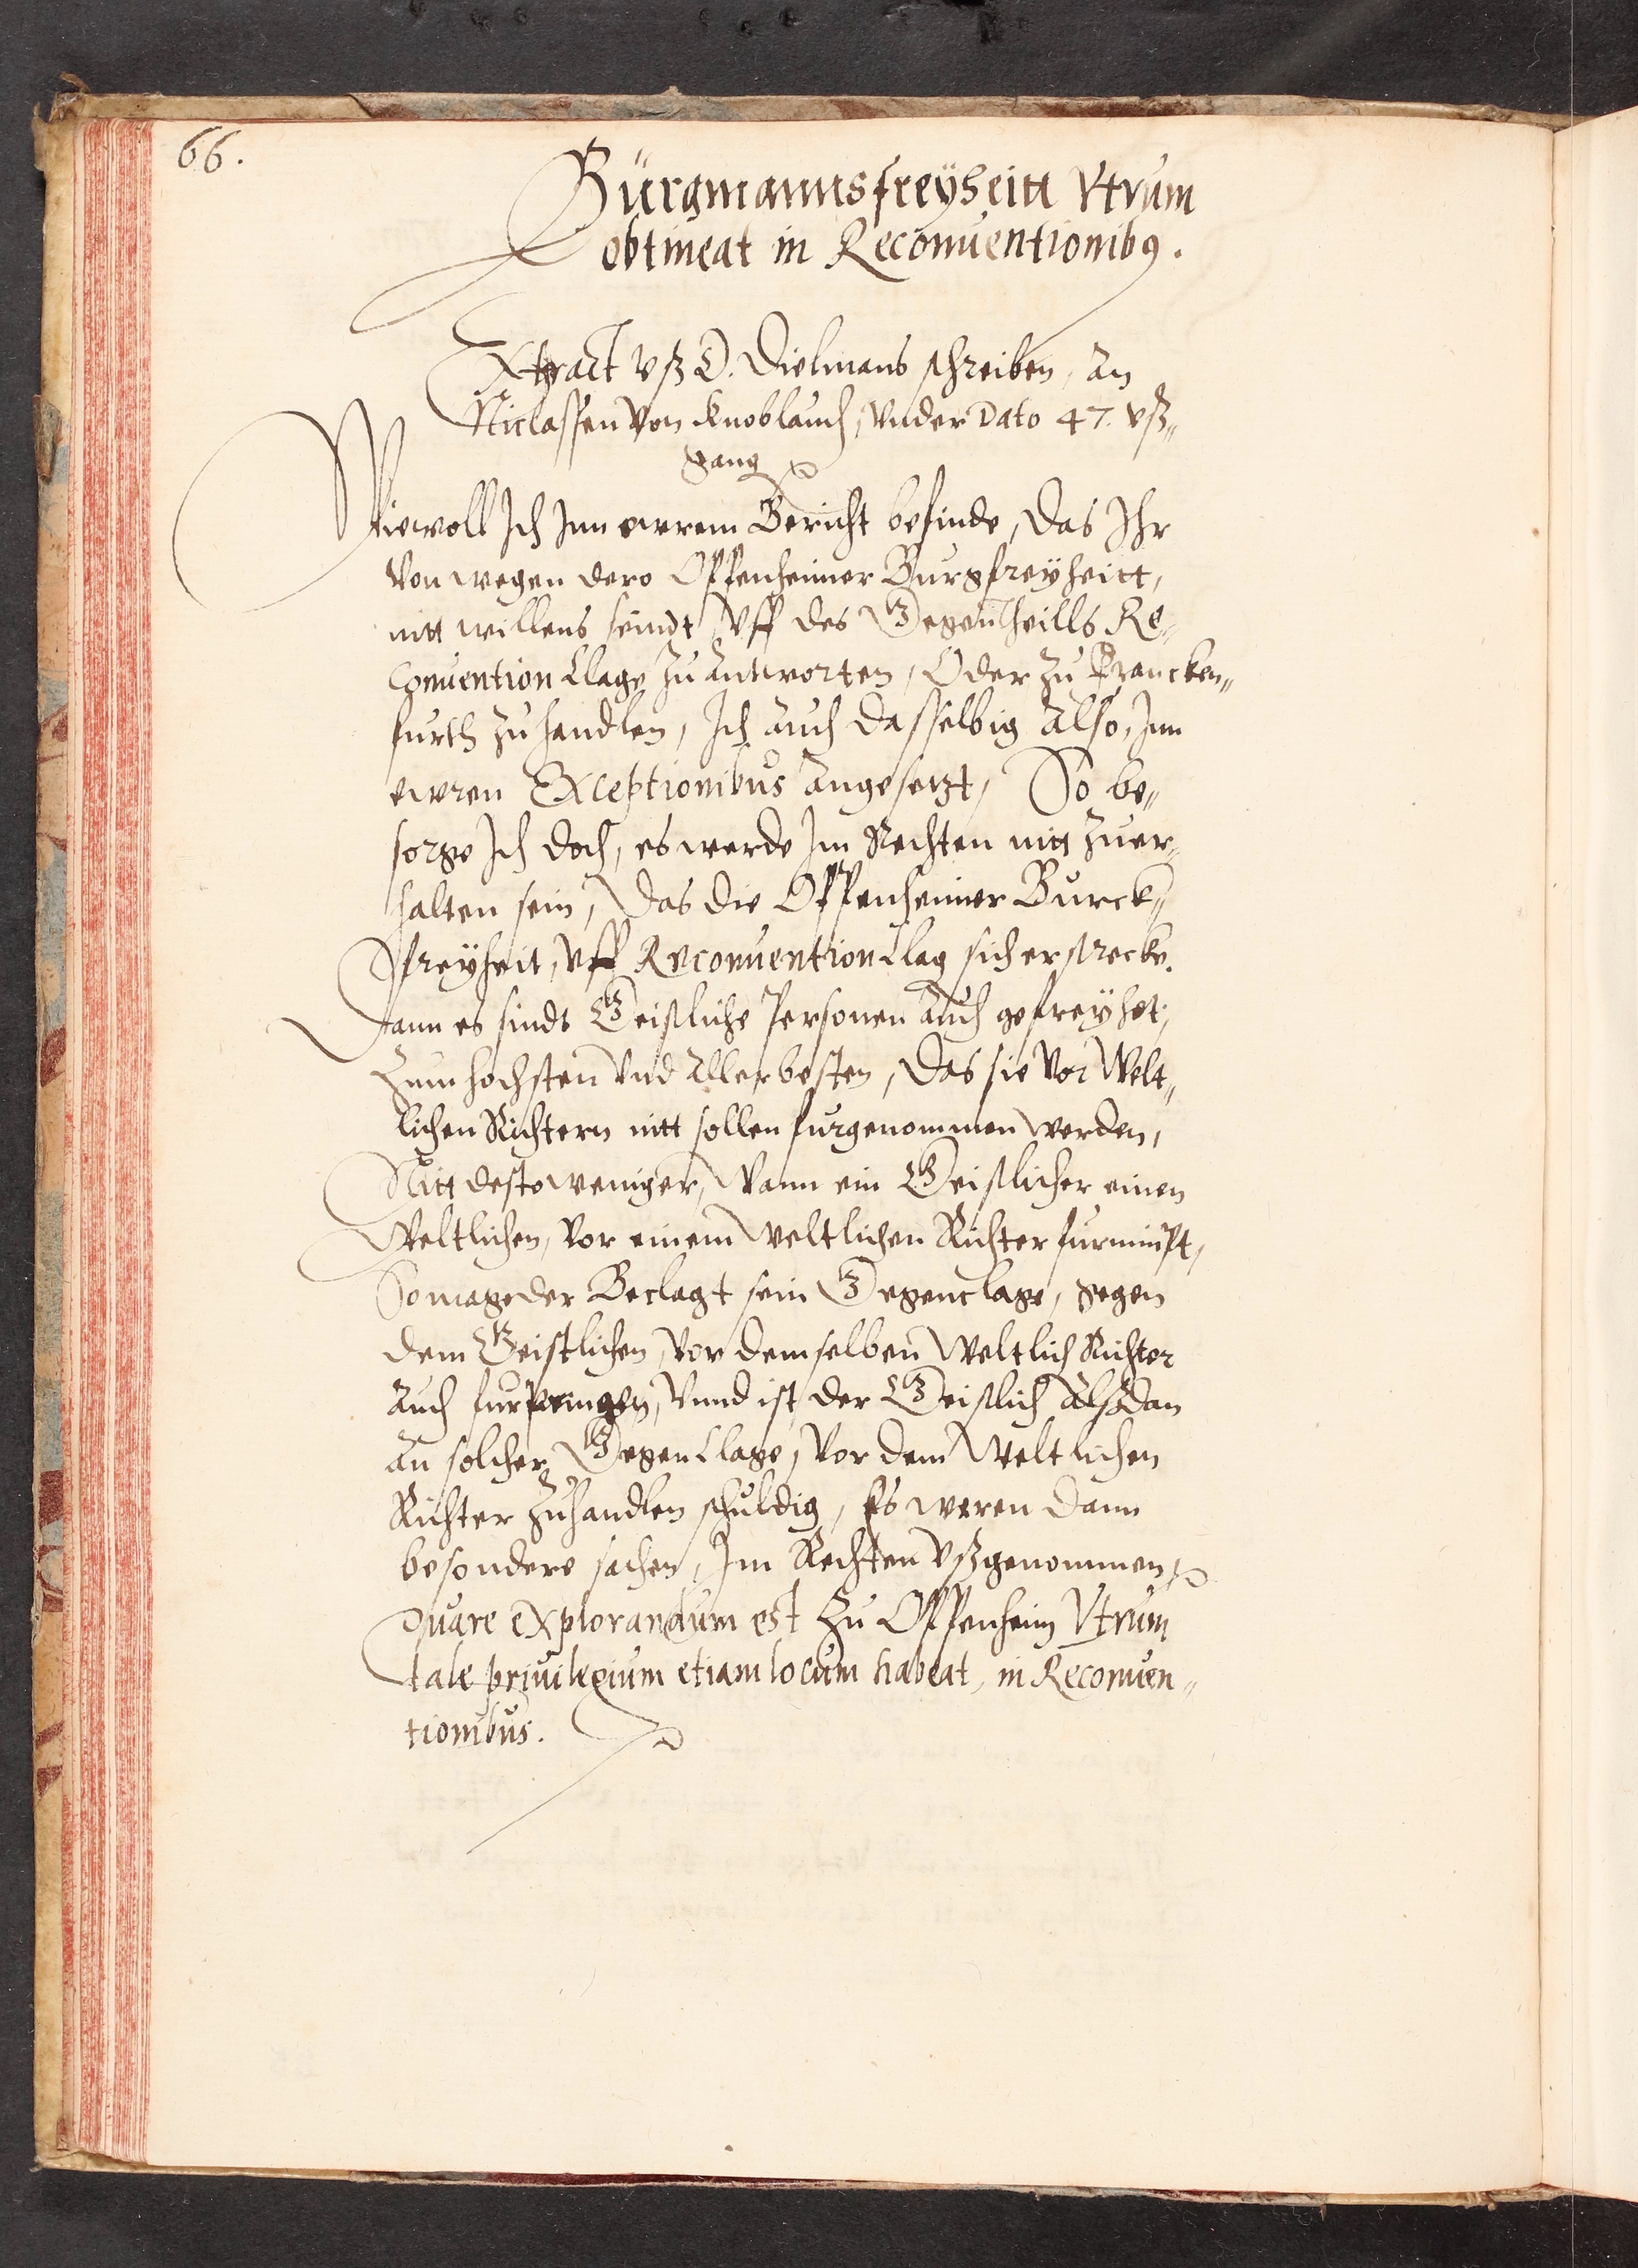 66.
Bürgmannsfreÿheitt Vtrum
obtineat in Reconuentionib9.
Extract vß D. Dielmans schreiben, an
Niclassen von Knoblauch, vnder Dato 47. vß„
gang
Wiewoll Ich Inn ewrem Bericht befinde, Das Ihr
von wegen dero Oppenheimer Burgfreÿheitt,
nitt willens seindt, vff des Gegentheills Re„
Conuention Clage zu antworten, Oder zu Francken„
furth zu handlen, Ich auch dasselbig also, Inn
ewren Exceptionibus angesetzt, So be„
sorge Ich doch, es werde Im Rechten nitt zuer„
halten sein, Das die Oppenheimer Burck„
freÿheit, vff Reconuention Clag sich erstrecke.
Dann es sindt Geistliche Personen auch gefreyhet,
zum hochsten vnd allerbesten, Das sie vor Welt„
lichen Richtern nitt sollen furgenommen werden,
Nitt desto weniger, Wann ein Geistlicher einen
Weltlichen, vor einem Weltlichen Richter furnimpt,
So mage der Beclagt sein Gegenclage, gegen
dem Geistlichen, vor demselben Weltlich Richter
auch furpringen, Vnnd ist der Geistlich alßdan
an solcher Gegen Clage, vor dem Weltlichen
Richter zuhandlen schuldig, Es weren dann
besondere sachen, Im Rechten vßgenommen
Quare explorandum est zu Oppenheim Vtrum
tale priuilegium etiam locum habeat, in Reconuen„
tionibus.